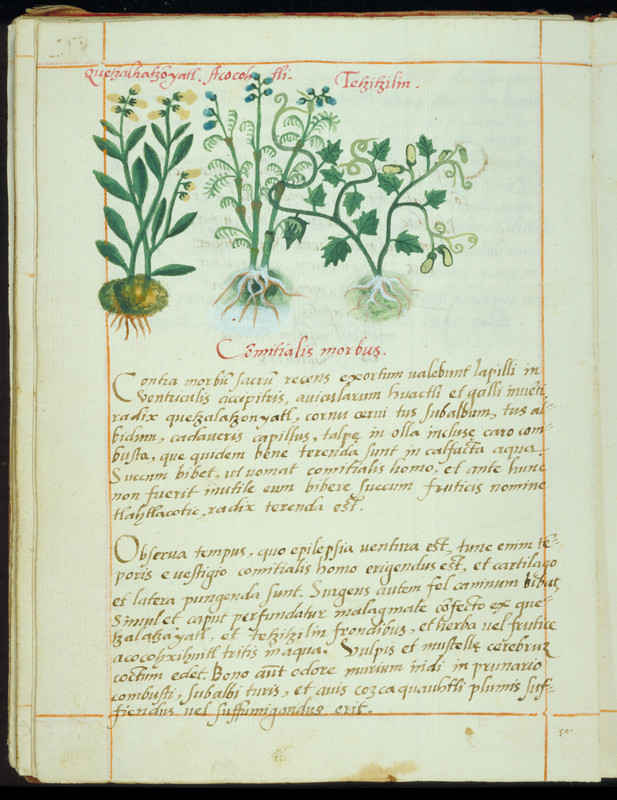 Quetzalatzoyatl. Acocoh tli. Tetzitzilin.
Comitialis morbus.
Contra morbū sacrū recens exortum valebunt lapilli in
ventriculis accipitris, auicularum huactli et galli inuēti,
radix quetzalatzonyatl, cornu cerui tus subalbum, tus al-
bidum, cadaueris capillus, talpę in olla inclusę caro com-
busta, que quidem bene terenda sunt in calfacta aqua.
Succum bibet, ut uomat comitialis homo, et ante hunc
non fuerit inutile eum bibere succum fruticis nomine
tlahtlacotic, radix terenda est.
Obserua tempus, quo epilepsia ventura est, tunc enim tē-
poris e vestigio comitialis homo erigendus est, et cartilago
et latera pungenda sunt. Surgens autem fel caninum bibat,
Simul et caput perfundatur malagmate cōfecto ex que-
tzalatzayatl, et tetzitzilin frondibus, et herba vel frutice
acocohxihuitl tritis in aqua. Vulpis et mustellę cerebrum
coctum edet. Bono aūt odore murium nidi in prunario
combusti, subalbi turis, et auis cozcaquauhtli plumis suf-
fiendus vel suffumigandus erit.
50.